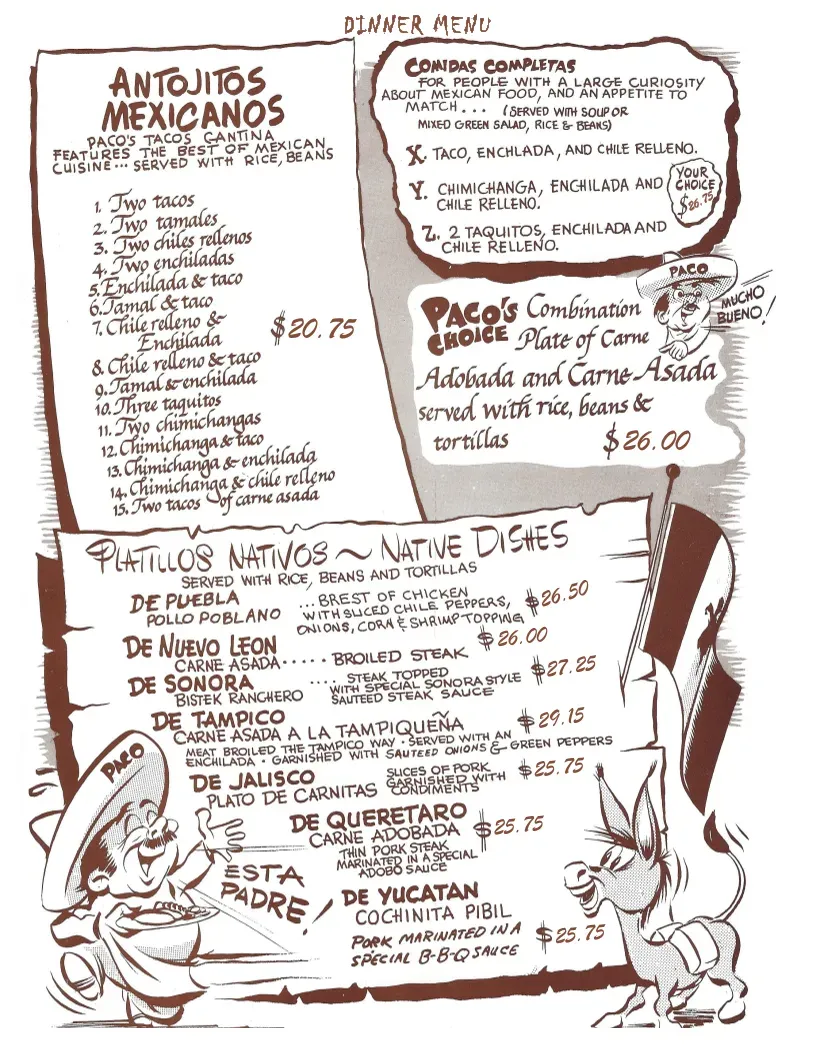 DINNER MENU
ANTOJITOS
MEXICANOS
PACO'S TACOS CANTINA
FEATURES THE BEST OF MEXICAN
CUISINE... SERVED WITH RICE, BEANS
1. Two tacos
2. Two tamales
3. Two chiles rellenos
4. Two enchiladas
5. Enchilada & taco
6. Tamal & taco
7. Chile relleno &
Enchilada
$20.75
8. Chile relleno & taco
9. Tamal & enchilada
10. Three taquitos
11. Two chimichangas
12. Chimichanga & taco
13. Chimichanga & enchilada
14. Chimichanga & chile relleno
15. Two tacos of carne asada
COMIDAS COMPLETAS
FOR PEOPLE WITH A LARGE CURIOSITY
ABOUT MEXICAN FOOD, AND AN APPETITE TO
MATCH... (SERVED WITH SOUP OR
MIXED GREEN SALAD, RICE & BEANS)
X. TACO, ENCHLADA, AND CHILE RELLENO.
Y. CHIMICHANGA, ENCHILADA AND
CHILE RELLENO.
Z. 2 TAQUITOS, ENCHILADA AND
CHILE RELLENO.
YOUR
CHOICE
$26.75
PACO
MUCHO
BUENO!
PACO'S
CHOICE
Combination
Plate of Carne
Adobada and Carne Asada
served with rice, beans &
tortillas
$26.00
PLATILLOS NATIVOS ~ NATIVE DISHES
SERVED WITH RICE, BEANS AND TORTILLAS
DE PUEBLA
POLLO POBLANO
...BREST OF CHICKEN
WITH SLICED CHILE PEPPERS,
ONIONS, CORN & SHRIMP TOPPING
$26.50
DE NUEVO LEON
CARNE ASADA..... BROILED STEAK
$26.00
DE SONORA
BISTEK RANCHERO
.... STEAK TOPPED
WITH SPECIAL SONORA STYLE
SAUTEED STEAK SAUCE
$27.25
DE TAMPICO
CARNE ASADA A LA TAMPIQUEÑA
$29.15
MEAT BROILED THE TAMPICO WAY · SERVED WITH AN
ENCHILADA · GARNISHED WITH SAUTEED ONIONS & GREEN PEPPERS
DE JALISCO
PLATO DE CARNITAS
SLICES OF PORK
GARNISHED WITH
CONDIMENTS
$25.75
DE QUERETARO
CARNE ADOBADA
$25.75
THIN PORK STEAK
MARINATED IN A SPECIAL
ADOBO SAUCE
DE YUCATAN
COCHINITA PIBIL
PORK MARINATED IN A
SPECIAL B-B-Q SAUCE
$25.75
PACO
ESTA
PADRE!